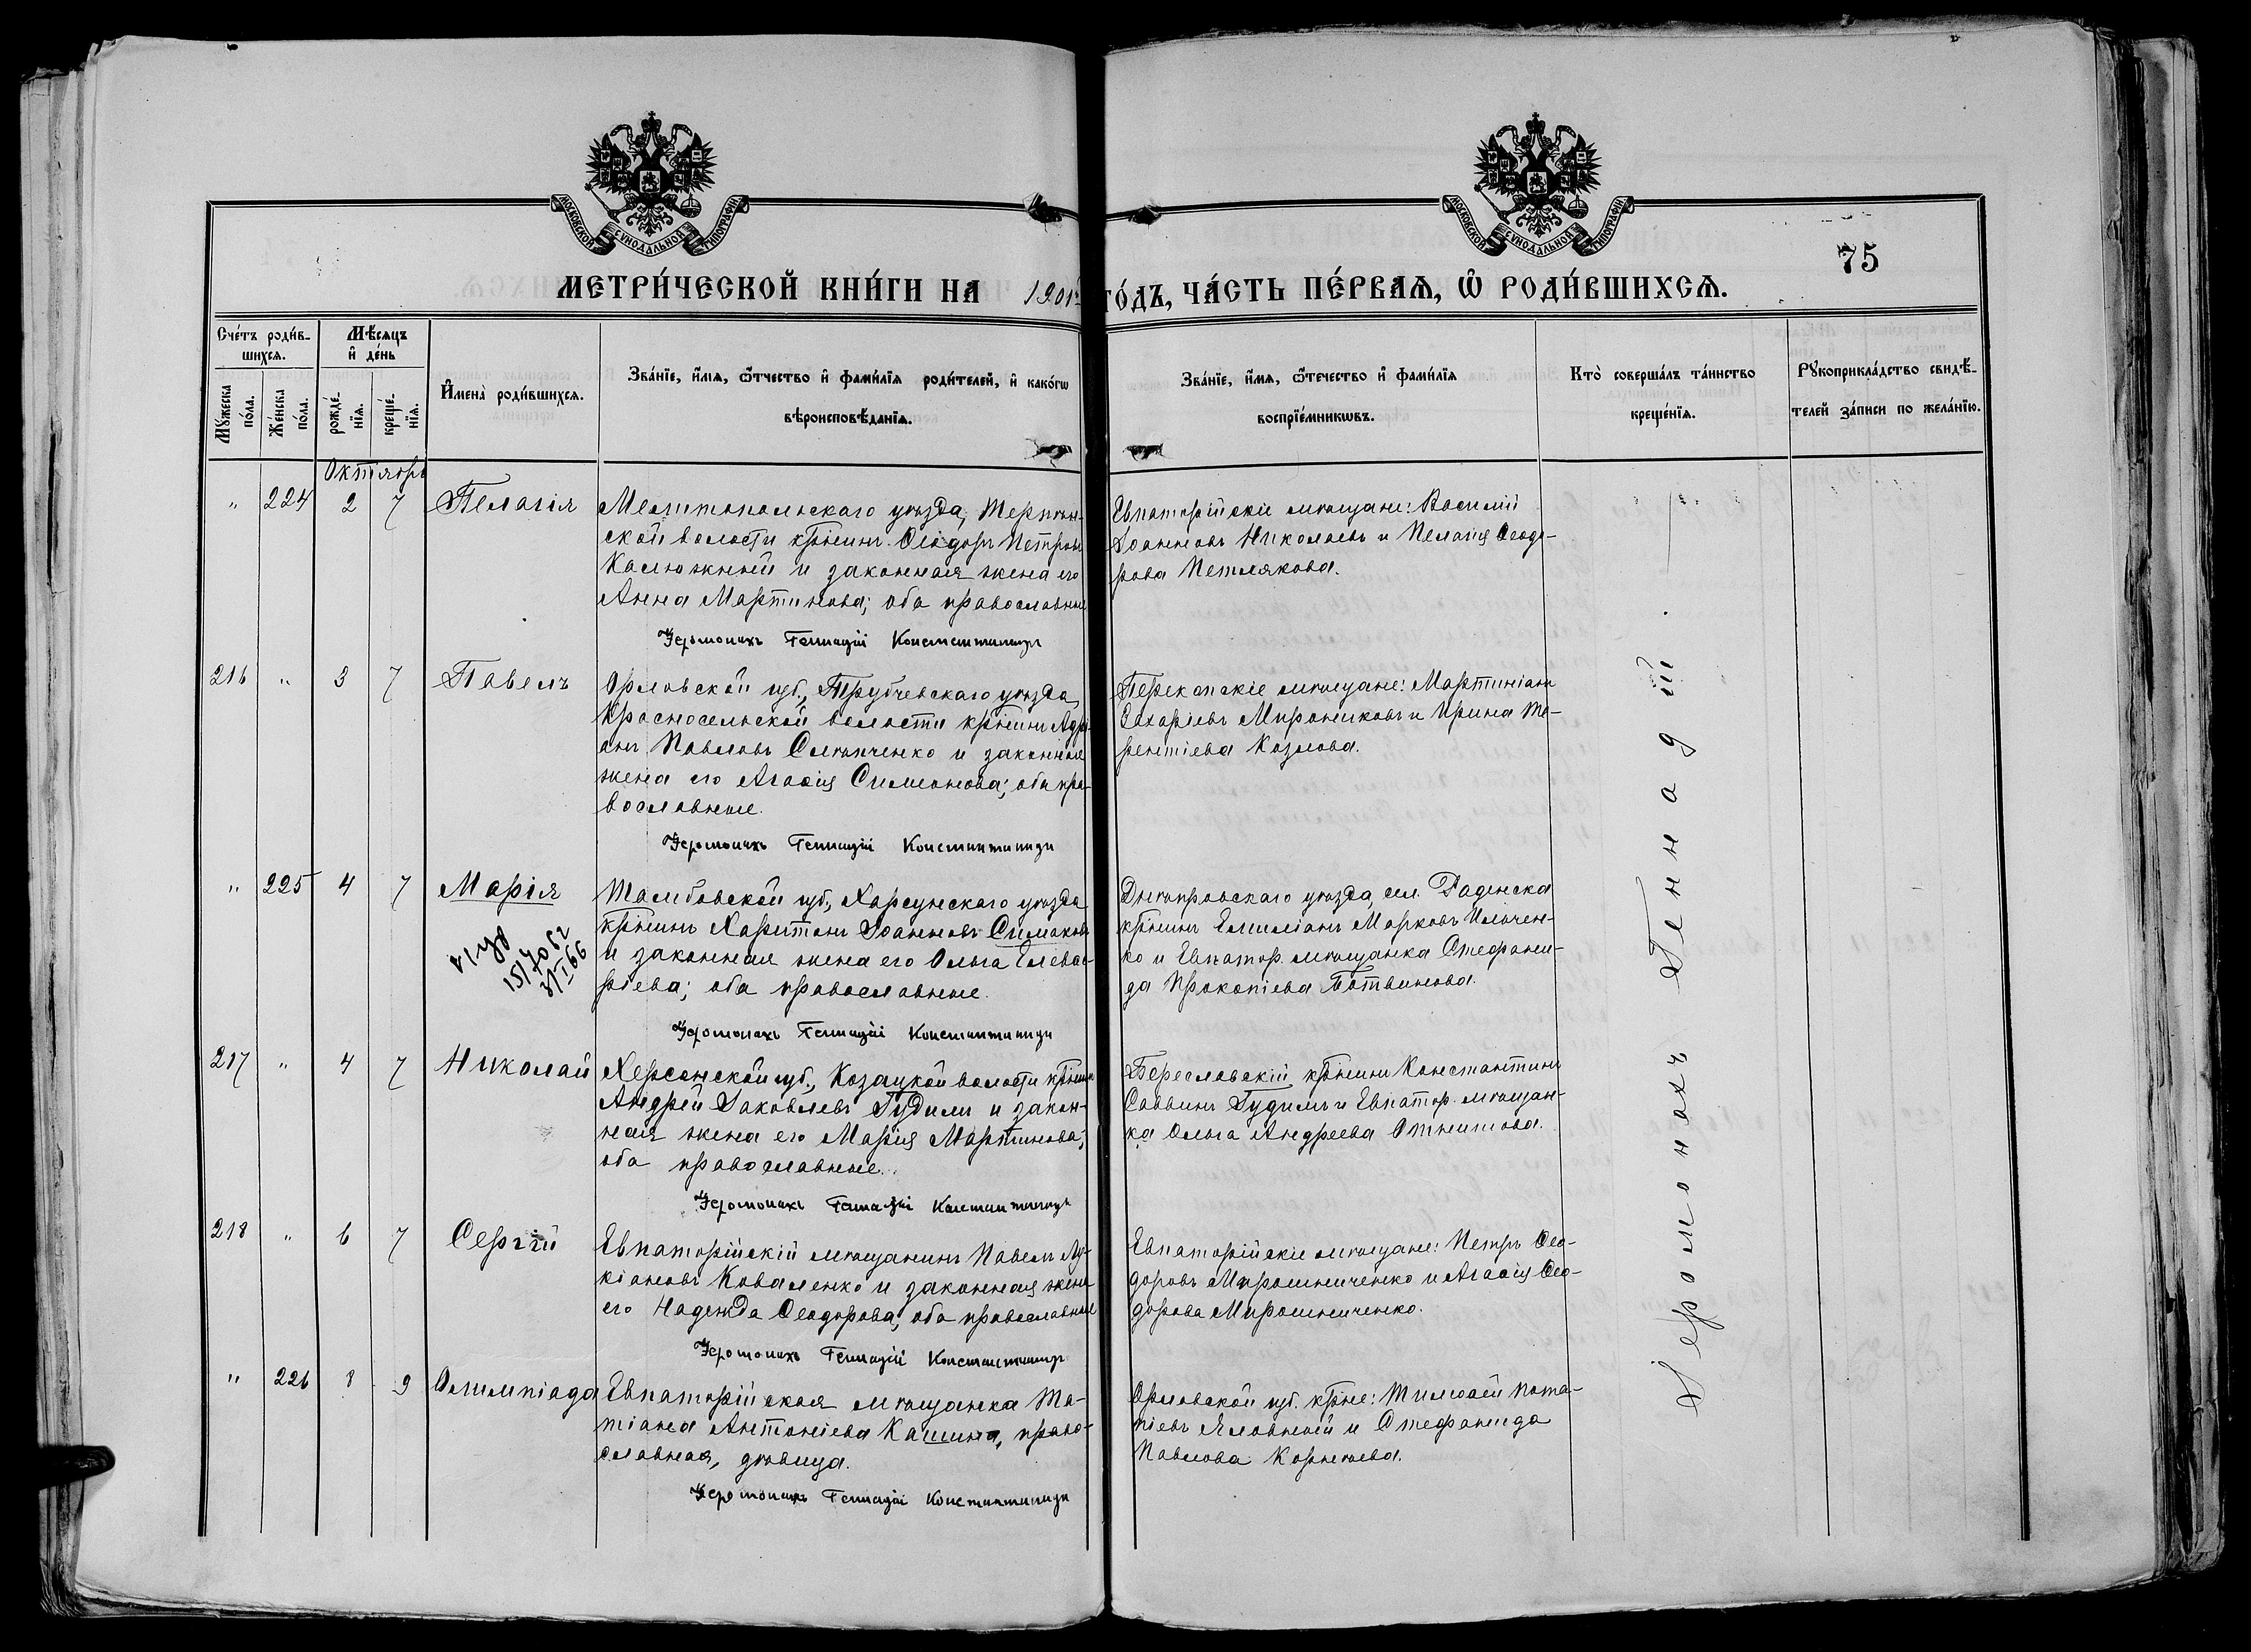 МОСКОВСКОЙ СѴНОДАЛЬНОЙ ТИПОГРАФІИ
МОСКОВСКОЙ СѴНОДАЛЬНОЙ ТИПОГРАФІИ
75
МЕТРИ́ЧЕСКОЙ КНИ́ГИ НА 1901 ГО́ДЪ, ЧА́СТЬ ПЕ́РВАѦ, Ѡ҆ РОДИ́ВШИХСѦ.
Сче́тъ роди́в-
шихсѧ.
Мѣ́сѧцъ
и҆ де́нь
Мꙋ́жеска
по́ла.
Же́нска
по́ла.
рожде́-
нїѧ.
креще́-
нїѧ.
И҆мена̀ роди́вшихсѧ.
Зва́нїе, и҆́мѧ, ѻ҆́тчество и҆ фами́лїѧ роди́телей, и҆ како́гѡ
вѣроисповѣ́данїѧ.
Зва́нїе, и҆́мѧ, ѻ҆те́чество и҆ фами́лїѧ
воспрїе́мникѡвъ.
Кто̀ соверша́лъ та́инство
креще́нїѧ.
Рꙋкоприкла́дство свидѣ́-
телей за́писи по жела́нїю.
Октябрь
" 224 2 7 Пелагія
Мелитопольскаго уѣзда, Терпѣн-
ской волости кр̃нинъ Ѳеодоръ Петровъ
Калюжный и законная жена его
Анна Мартинова; оба православные
Іеромонахъ Геннадій Константиниди
Евпаторійскіе мѣщане: Василій
Іоанновъ Николаевъ и Пелагія Ѳеодо-
рова Петлякова.
216 " 3 7 Павелъ
Орловской губ., Трубчевскаго уѣзда
Красносельской волости кр̃нинъ Адрі-
анъ Павловъ и законная
жена его Агаѳія Симеонова; оба пра-
вославные.
Іеромонахъ Геннадій Константиниди
Перекопскіе мѣщане: Мартиніанъ
Захаріевъ Мирониковъ и Ирина Те-
рентіева Козлова.
" 225 4 7 Марія
15/
3/I 66
Тамбовской губ., Харсунскаго уѣзда
кр̃нинъ Харитонъ Іоанновъ Симаковъ
и законная жена его Ольга Елева-
ріева; оба православные.
Іеромонахъ Геннадій Константиниди
Днѣпровскаго уѣзда, сел. Раденска
кр̃нинъ Емиліанъ Марковъ Ильчен-
ко и Евпатор. мѣщанка Стефани-
да Прокопіева Ботвинова.
217 " 4 7 Николай
Херсонской губ., Козацкой волости кр̃нинъ
Андрей Іаковлевъ Гудимъ и закон-
ная жена его Марія Мартинова;
оба православные.
Іеромонахъ Геннадій Константиниди
Бериславскій кр̃нинъ Константинъ
Саввинъ Гудимъ и Евпатор. мѣщан-
ка Ольга Андреева
218 " 6 7 Сергій
Евпаторійскій мѣщанинъ Павелъ Лу-
кіановъ Коваленко и законная жена
его Надежда Ѳеодорова, оба православные
Іеромонахъ Геннадій Константиниди
Евпаторійскіе мѣщане: Петръ Ѳео-
доровъ Мирошниченко и Агаѳія Ѳео-
дорова Мирошниченко.
" 226 8 9 Олимпіада
Евпаторійская мѣщанка Та-
тіана Антоніева Кашина, право-
славная, дѣвица.
Іеромонахъ Геннадій Константиниди
Орловской губ. кр̃не: Тимоѳей Пота-
піевъ Яловный и Стефанида
Павлова Корнѣева.
Іеромонахъ Геннадій.